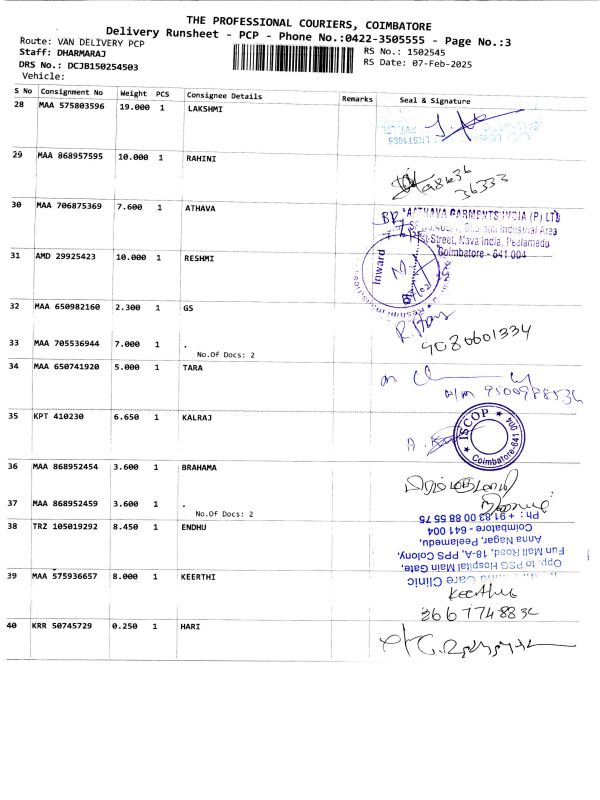 THE PROFESSIONAL COURIERS, COIMBATORE
Delivery Runsheet - PCP - Phone No.:0422-3505555 - Page No.:3
Route: VAN DELIVERY PCP
RS No.: 1502545
Staff: DHARMARAJ
RS Date: 07-Feb-2025
DRS No.: DCJB150254503
Vehicle:
S No Consignment No Weight PCS Consignee Details Remarks Seal & Signature
28 MAA 575803596 19.000 1 LAKSHMI
29 MAA 868957595 10.000 1 RAHINI
36333
30 MAA 706875369 7.600 1 ATHAVA
AATHAVA GARMENTS INDIA (P) LTD
Industrial Area
Street, Nava India, Peelamedu
Coimbatore - 641 004
31 AMD 29925423 10.000 1 RESHMI
Inward
32 MAA 650982160 2.300 1 GS
9080601334
33 MAA 705536944 7.000 1 .
No.Of Docs: 2
34 MAA 650741920 5.000 1 TARA
35 KPT 410230 6.650 1 KALRAJ
ISCOP
Coimbatore-641 004
36 MAA 868952454 3.600 1 BRAHAMA
37 MAA 868952459 3.600 1 .
No.Of Docs: 2
38 TRZ 105019292 8.450 1 ENDHU
Care Clinic
Opp. to PSG Hospital Main Gate,
Fun Mall Road, 18-A, PPS Colony,
Anna Nagar, Peelamedu,
Coimbatore - 641 004
Ph : + 91 83 00 88 55 75
39 MAA 575936657 8.000 1 KEERTHI
Keerthi
40 KRR 50745729 0.250 1 HARI